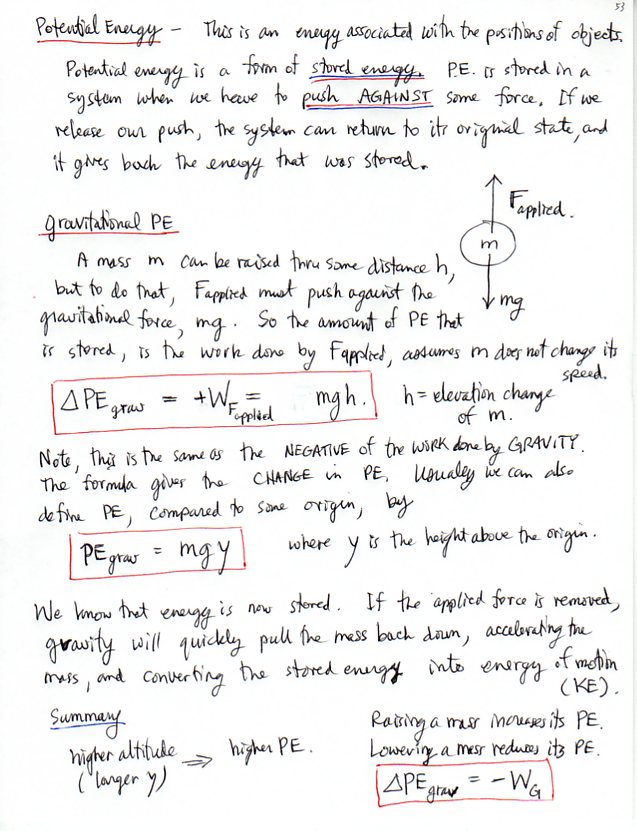 53
Potential Energy - This is an energy associated with the positions of objects.
Potential energy is a form of stored energy. P.E. is stored in a
system when we have to push AGAINST some force. If we
release our push, the system can return to its original state, and
it gives back the energy that was stored.
Fapplied.
gravitational PE
m
A mass m can be raised thru some distance h,
but to do that, Fapplied must push against the
mg
gravitational force, mg. So the amount of PE that
is stored, is the work done by Fapplied, assumes m does not change its
speed.
ΔPEgrav = +WFapplied = mgh. h = elevation change
of m.
Note, this is the same as the NEGATIVE of the WORK done by GRAVITY.
The formula gives the CHANGE in PE. Usually we can also
define PE, compared to some origin, by
PEgrav = mgy where y is the height above the origin.
We know that energy is now stored. If the applied force is removed,
gravity will quickly pull the mass back down, accelerating the
mass, and converting the stored energy into energy of motion
(KE).
Summary
higher altitude ⇒ higher PE.
(larger y)
Raising a mass increases its PE.
Lowering a mass reduces its PE.
ΔPEgrav = -WG